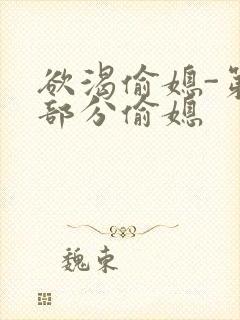 欲渴偷媳-第
部分偷媳
魏东